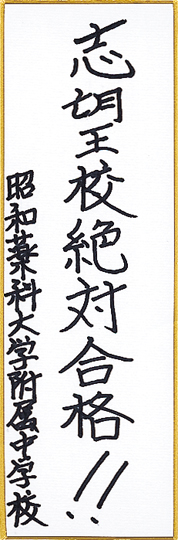 志望校絶対合格!!
昭和薬科大学附属中学校